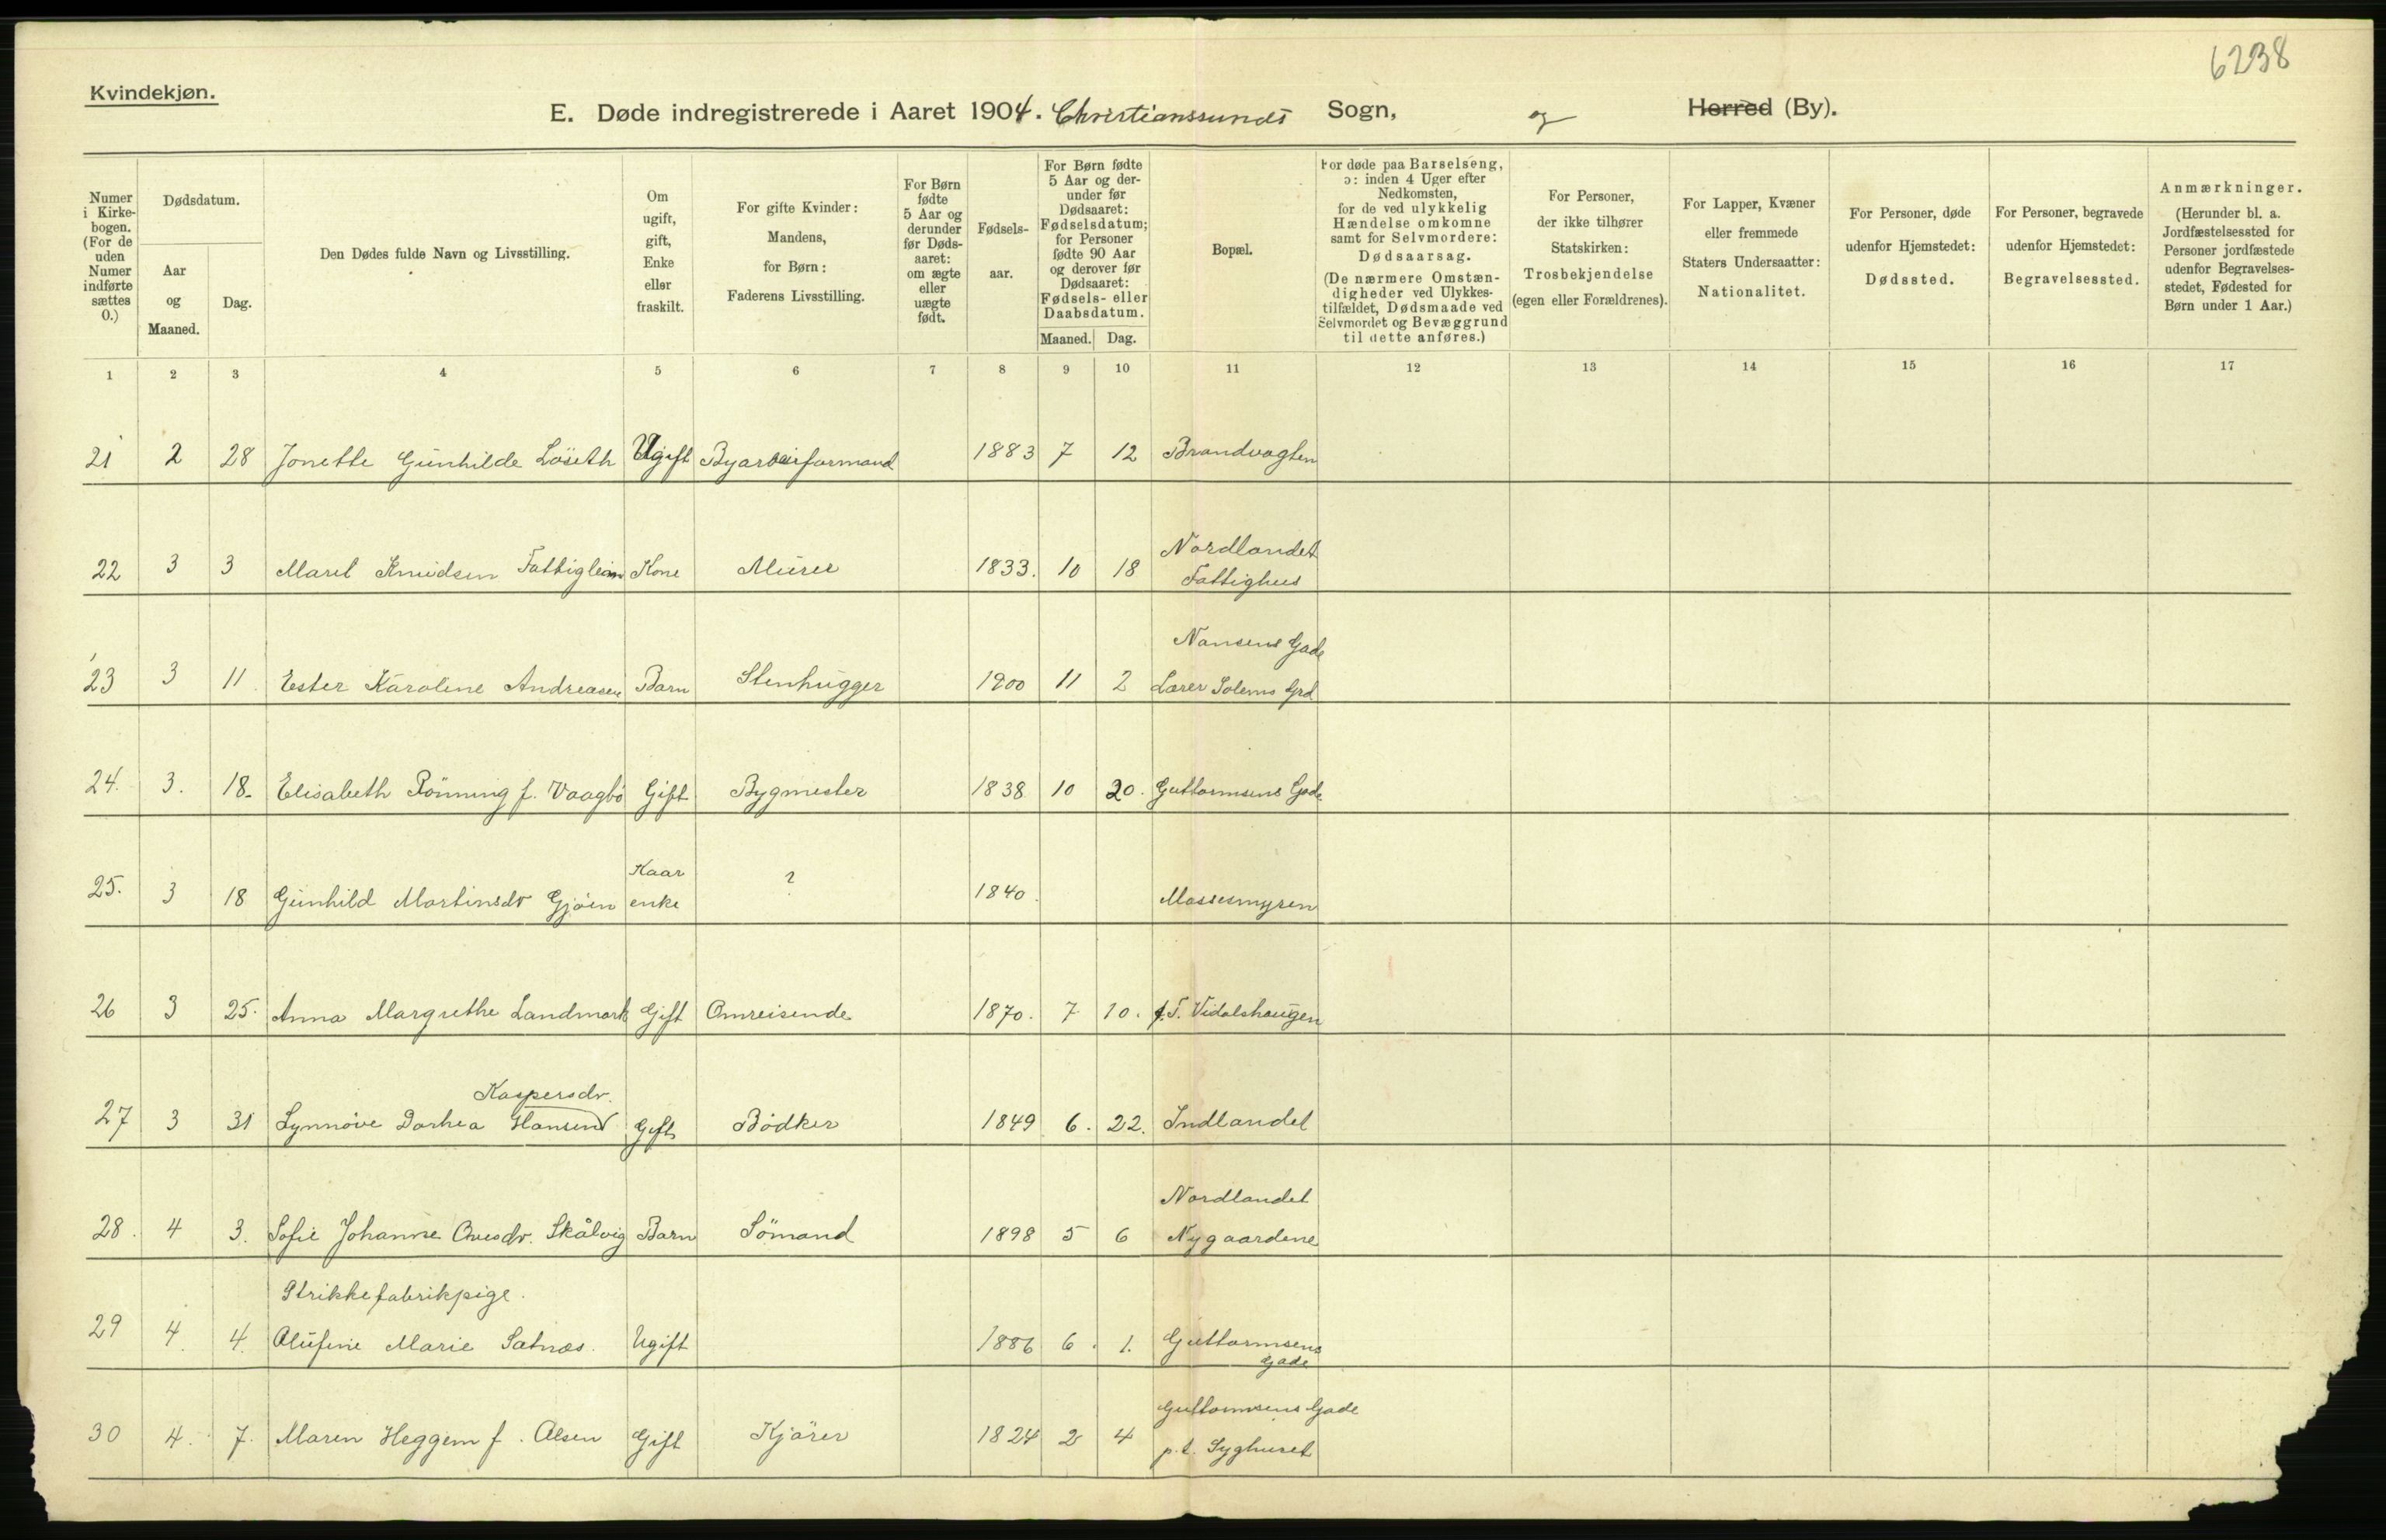 6238
Kvindekjøn.
E. Døde indregistrerede i Aaret 1904. Christianssunds Sogn, og Herred (By).
Numer i Kirke-bogen. (For de uden Numer indførte sættes 0.)
Dødsdatum.
Aar og Maaned.
Dag.
Den Dødes fulde Navn og Livsstilling.
Om ugift, gift, Enke eller fraskilt.
For gifte Kvinder: Mandens, for Børn: Faderens Livsstilling.
For Børn fødte 5 Aar og derunder før Døds-aaret: om ægte eller uægte født.
Fødsels-aar.
For Børn fødte 5 Aar og der-under før Dødsaaret: Fødselsdatum; for Personer fødte 90 Aar og derover før Dødsaaret: Fødsels- eller Daabsdatum.
Maaned. Dag.
Bopæl.
For døde paa Barselseng, ɔ: inden 4 Uger efter Nedkomsten, for de ved ulykkelig Hændelse omkomne samt for Selvmordere: Dødsaarsag. (De nærmere Omstæn-digheder ved Ulykkes-tilfældet, Dødsmaade ved Selvmordet og Bevæggrund til dette anføres.)
For Personer, der ikke tilhører Statskirken: Trosbekjendelse (egen eller Forældrenes).
For Lapper, Kvæner eller fremmede Staters Undersaatter: Nationalitet.
For Personer, døde udenfor Hjemstedet: Dødssted.
For Personer, begravede udenfor Hjemstedet: Begravelsessted.
Anmærkninger. (Herunder bl. a. Jordfæstelsessted for Personer jordfæstede udenfor Begravelses-stedet, Fødested for Børn under 1 Aar.)
1 2 3 4 5 6 7 8 9 10 11 12 13 14 15 16 17
21 2 28 Jonette Gunhilde Löseth Ugift Byarbeiformand 1883 7 12 Brandvagten
Nordlandet
22 3 3 Marit Knudsen Fattiglem Kone Murer 1833. 10 18 Fattighus
Nansens Gade
23 3 11 Ester Karoline Andreasen Barn Stenhugger 1900 11 2 Lærer Solems Grd
24. 3. 18. Elisabeth Rönning f. Vaagbö Gift Bygmester 1838 10 20. Guttormsens Gade
Kaar
25. 3 18 Gunhild Martinsdr Gjöen enke ? 1840. Massesmyren
26 3 25. Anna Margrethe Landmark Gift Omreisende 1870. 7 10. f.T. Vidalshaugen
Kaspersdr.
27 3 31 Synnöve Dorhea Hansen Gift Bödker 1849 6. 22. Indlandet
Nordlandet
28. 4 3. Sofie Johanne Ovesdr. Skålvig Barn Sömand 1898 5 6 Nygaardene
Strikkefabrikpige.
29 4. 4. Olufine Marie Satnæs. Ugift 1886 6. 1. Guttormsens
Gade
Guttormsens Gade
30 4. 7. Maren Heggem f. Olsen Gift Kjörer 1824 2 4 p.t. Syghuset